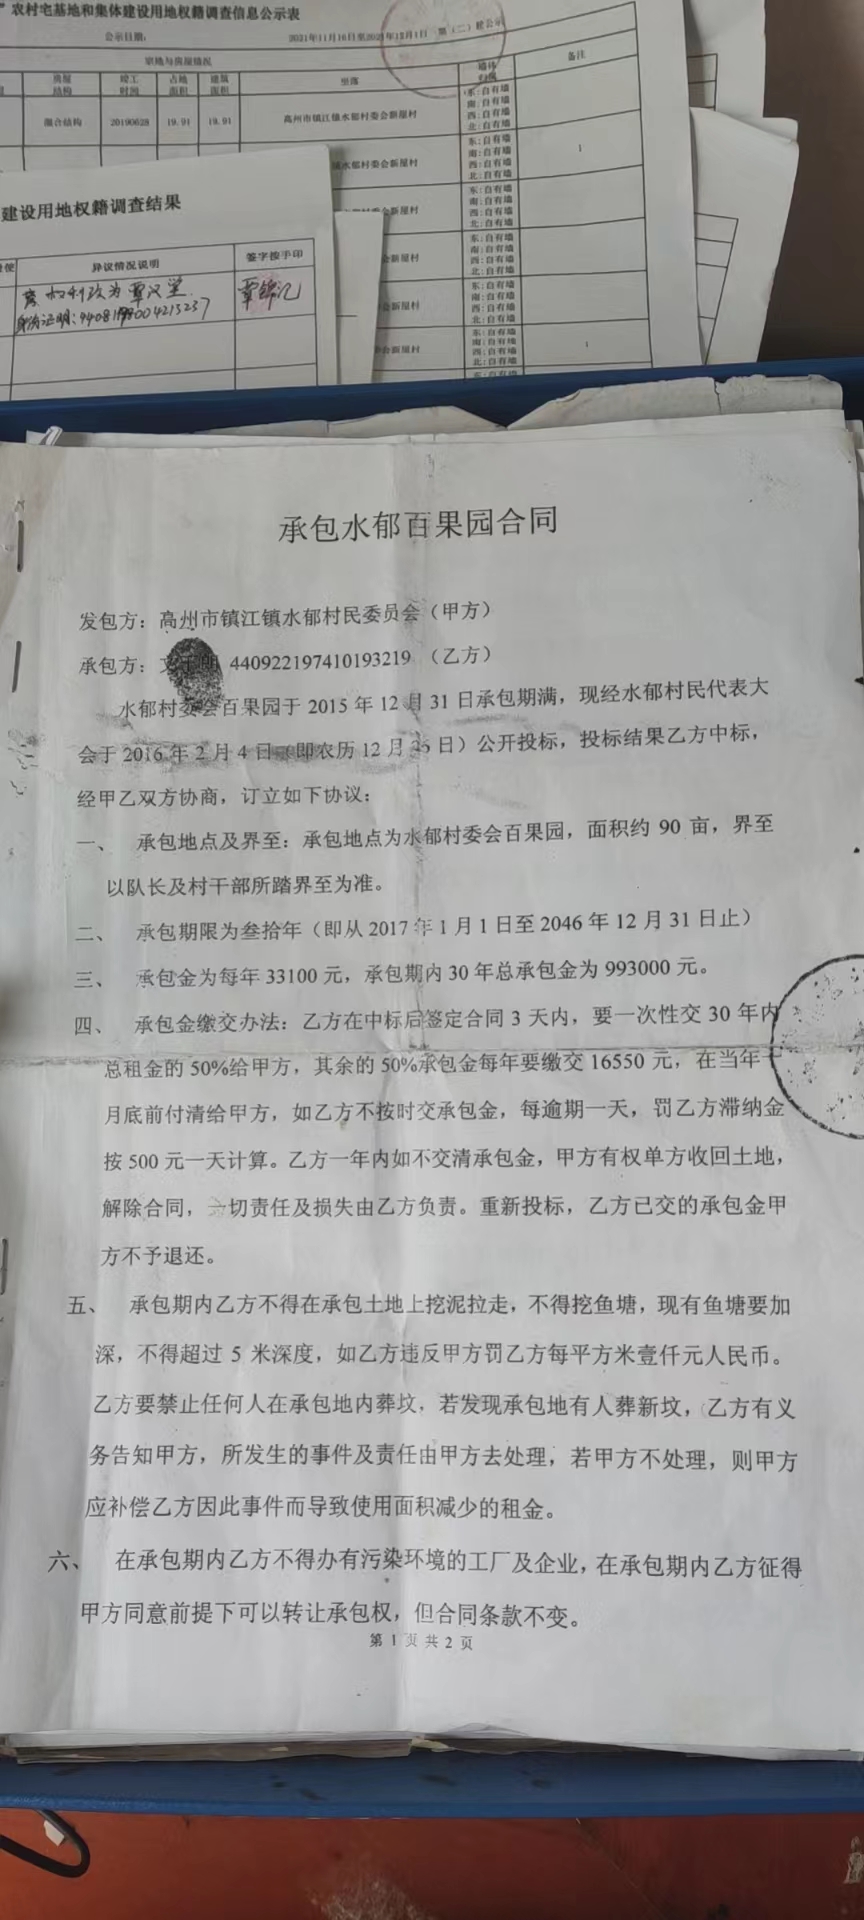 农村宅基地和集体建设用地权籍调查信息公示表
公示日期：
宗地与房屋情况
房屋结构 竣工时间 占地面积 建筑面积 坐落 墙体归属 备注
混合结构 20190628 19.91 19.91 高州市镇江镇水郁村委会新屋村
东:自有墙
南:自有墙
西:自有墙
北:自有墙
水郁村委会新屋村
东:自有墙
南:自有墙
西:自有墙
北:自有墙
1
委会新屋村
东:自有墙
南:自有墙
西:自有墙
北:自有墙
会新屋村
东:自有墙
南:自有墙
西:自有墙
北:自有墙
会新屋村
东:自有墙
南:自有墙
西:自有墙
北:自有墙
会新屋村
东:自有墙
南:自有墙
西:自有墙
北:自有墙
1
建设用地权籍调查结果
异议情况说明 签字按手印
承包水郁百果园合同
发包方：高州市镇江镇水郁村民委员会（甲方）
承包方： 440922197410193219 （乙方）
水郁村委会百果园于 2015 年 12 月 31 日承包期满，现经水郁村民代表大
会于 2016 年 2 月 4 日（即农历 12 月 26 日）公开投标，投标结果乙方中标，
经甲乙双方协商，订立如下协议：
一、 承包地点及界至：承包地点为水郁村委会百果园，面积约 90 亩，界至
以队长及村干部所踏界至为准。
二、 承包期限为叁拾年（即从 2017 年 1 月 1 日至 2046 年 12 月 31 日止）
三、 承包金为每年 33100 元，承包期内 30 年总承包金为 993000 元。
四、 承包金缴交办法：乙方在中标后签定合同 3 天内，要一次性交 30 年内
总租金的 50%给甲方，其余的 50%承包金每年要缴交 16550 元，在当年十
月底前付清给甲方，如乙方不按时交承包金，每逾期一天，罚乙方滞纳金
按 500 元一天计算。乙方一年内如不交清承包金，甲方有权单方收回土地，
解除合同，一切责任及损失由乙方负责。重新投标，乙方已交的承包金甲
方不予退还。
五、 承包期内乙方不得在承包土地上挖泥拉走，不得挖鱼塘，现有鱼塘要加
深，不得超过 5 米深度，如乙方违反甲方罚乙方每平方米壹仟元人民币。
乙方要禁止任何人在承包地内葬坟，若发现承包地有人葬新坟，乙方有义
务告知甲方，所发生的事件及责任由甲方去处理，若甲方不处理，则甲方
应补偿乙方因此事件而导致使用面积减少的租金。
六、 在承包期内乙方不得办有污染环境的工厂及企业，在承包期内乙方征得
甲方同意前提下可以转让承包权，但合同条款不变。
第 1 页 共 2 页